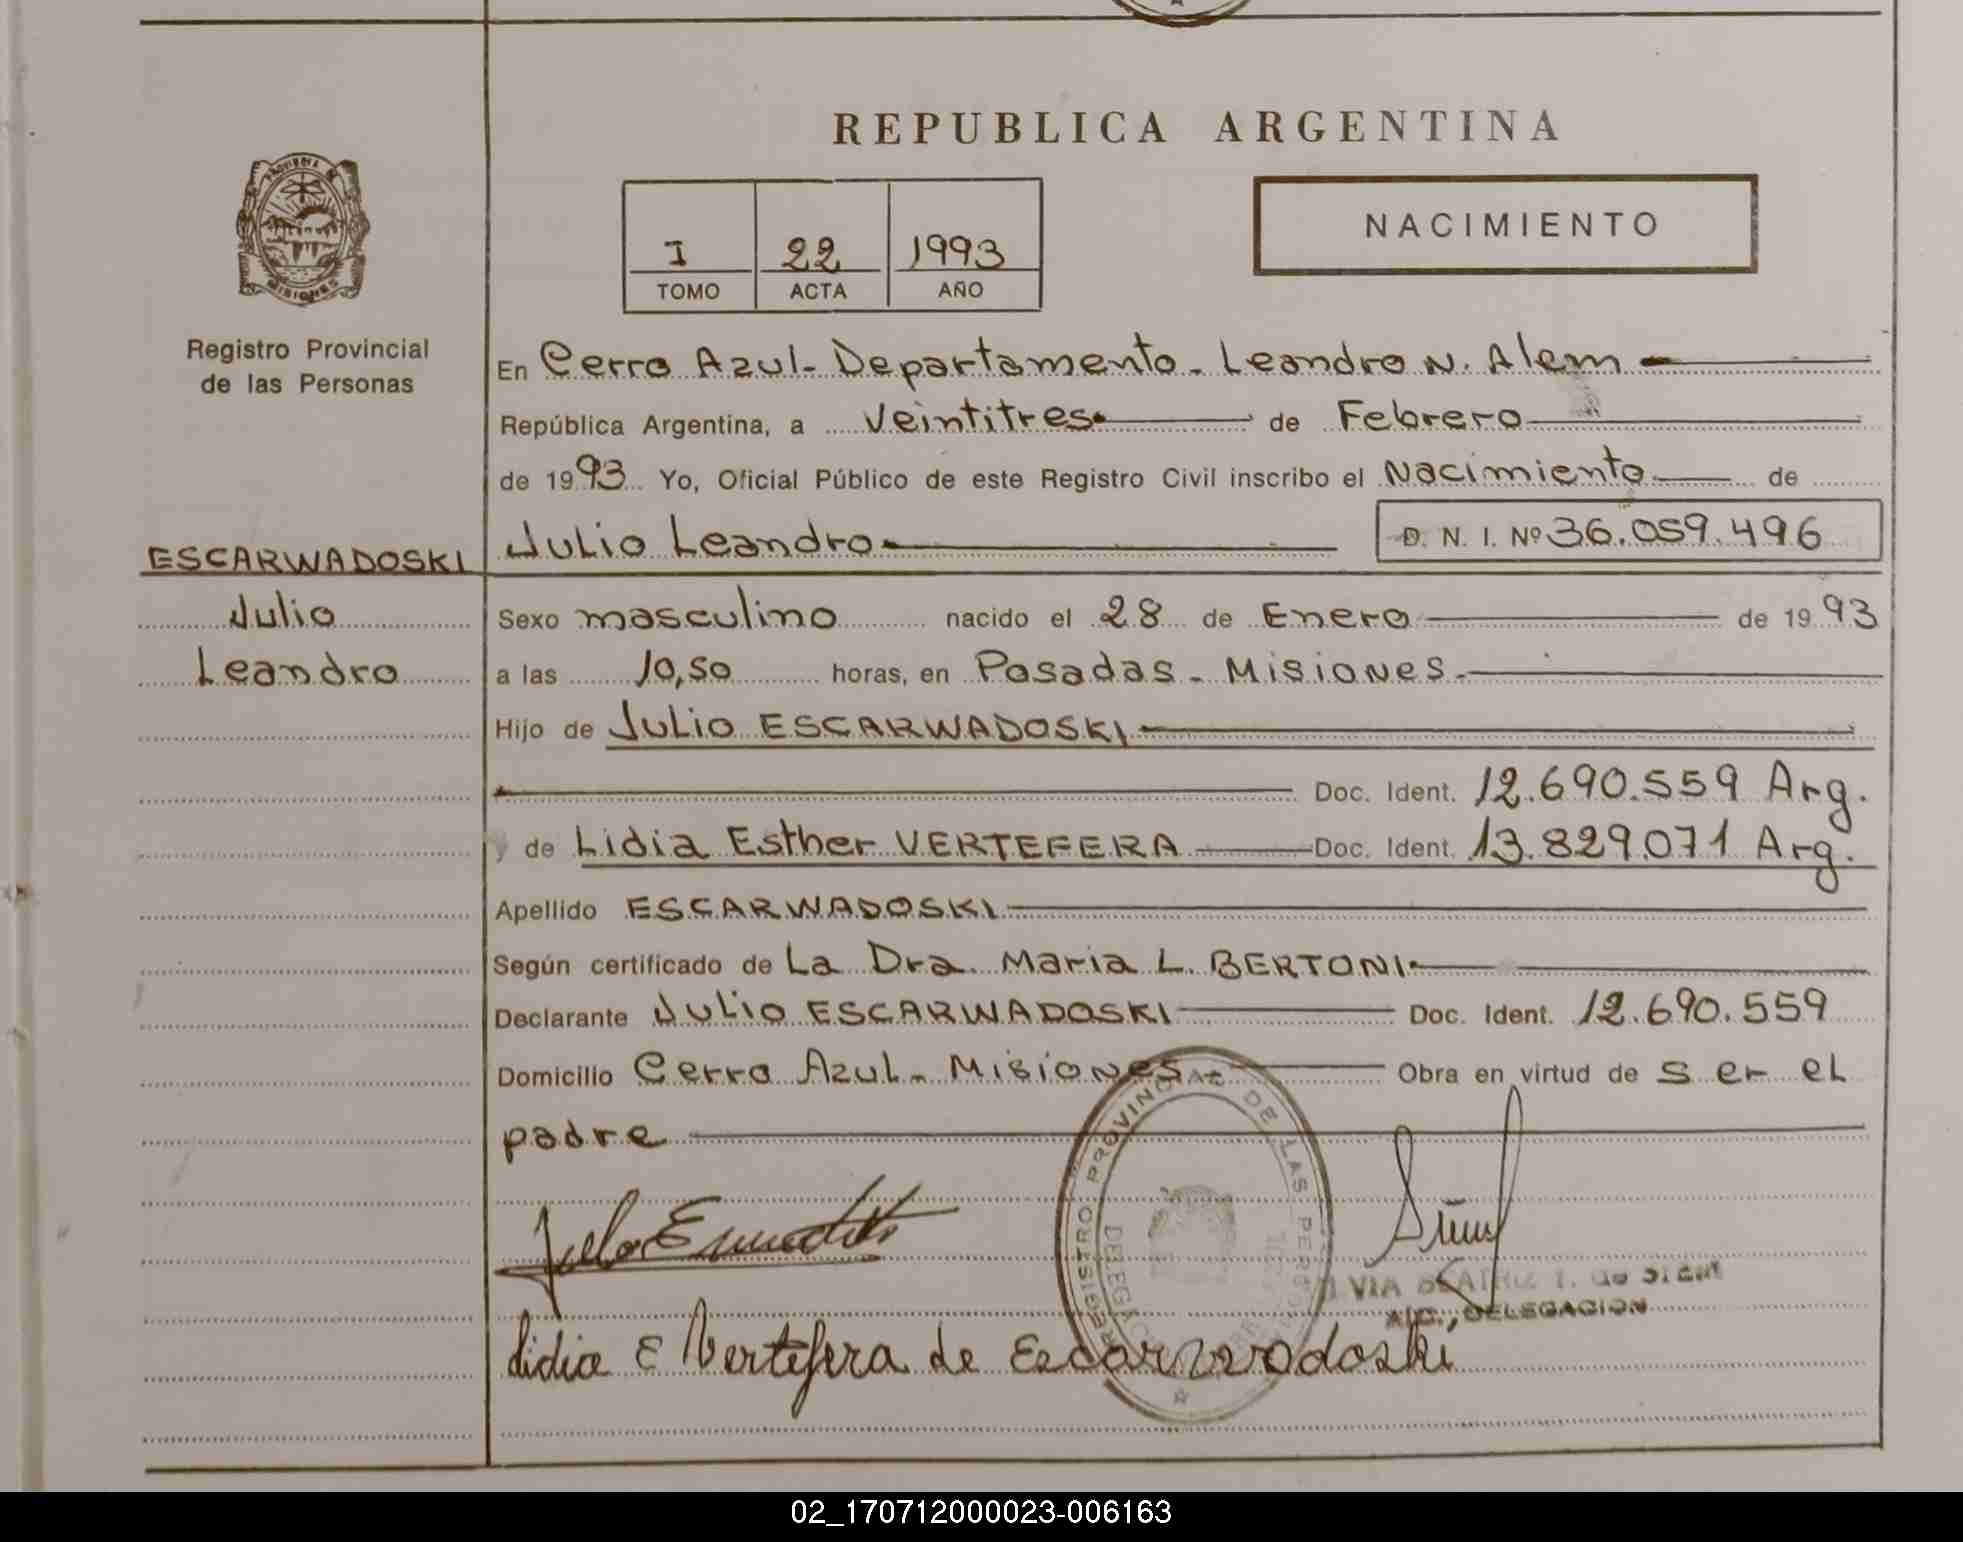 REPUBLICA ARGENTINA
PROVINCIA DE
MISIONES
Registro Provincial
de las Personas
NACIMIENTO
I 22 1993
TOMO ACTA AÑO
En Cerro Azul - Departamento - Leandro N. Alem
República Argentina, a Veintitres de Febrero
de 1993 Yo, Oficial Público de este Registro Civil inscribo el Nacimiento de
ESCARWADOSKI Julio Leandro D. N. I. Nº 36.059.496
Julio
Leandro
Sexo masculino nacido el 28 de Enero de 1993
a las 10,50 horas, en Posadas - Misiones.
Hijo de Julio ESCARWADOSKI
Doc. Ident. 12.690.559 Arg.
y de Lidia Esther VERTEFERA Doc. Ident. 13.829.071 Arg.
Apellido ESCARWADOSKI
Según certificado de La Dra. Maria L. BERTONI
Declarante Julio ESCARWADOSKI Doc. Ident. 12.690.559
Domicilio Cerro Azul - Misiones Obra en virtud de ser el
padre
REGISTRO PROVINCIAL DE LAS
BEATRIZ
DELEGACION
Lidia E Vertefera de Escarwadoski
02_170712000023-006163